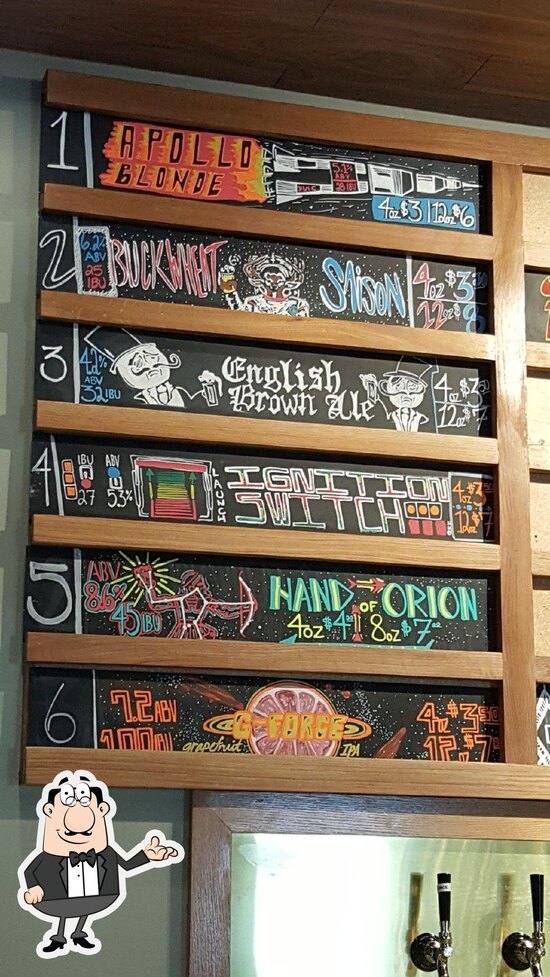 1
APOLLO
BLONDE
5.1%
ABV
28 IBU
4oz $3 | 12oz $6
2
6.2%
ABV
25
IBU
BUCKWHEAT
SAISON
4oz $3.50
12oz $8
3
4.2%
ABV
32 IBU
English
Brown Ale
4oz $3
12oz $7
4
IBU
27
ABV
5.3%
LAUNCH
IGNITION
SWITCH
4oz $3
12oz $7
5
ABV
8.6%
45 IBU
HAND OF ORION
4oz $4 8oz $7
6
7.2 ABV
100 IBU
G-FORCE
grapefruit IPA
4oz $3.50
12oz $7